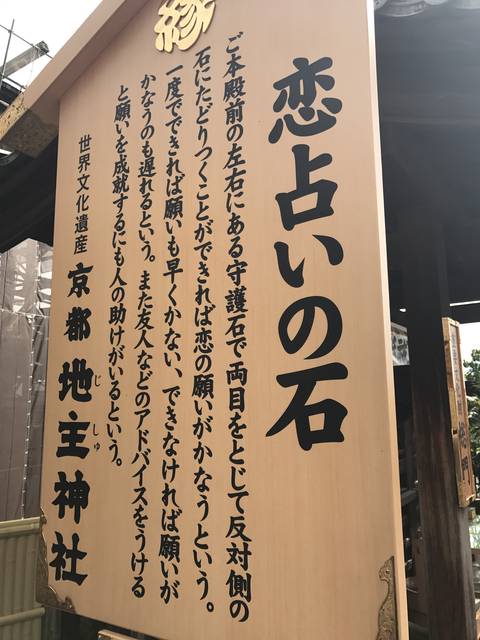 縁
恋占いの石
ご本殿前の左右にある守護石で両目をとじて反対側の
石にたどりつくことができれば恋の願いがかなうという。
一度でできれば願いも早くかない、できなければ願いが
かなうのも遅れるという。また友人などのアドバイスをうける
と願いを成就するにも人の助けがいるという。
世界文化遺産 京都 地主神社
じしゅ